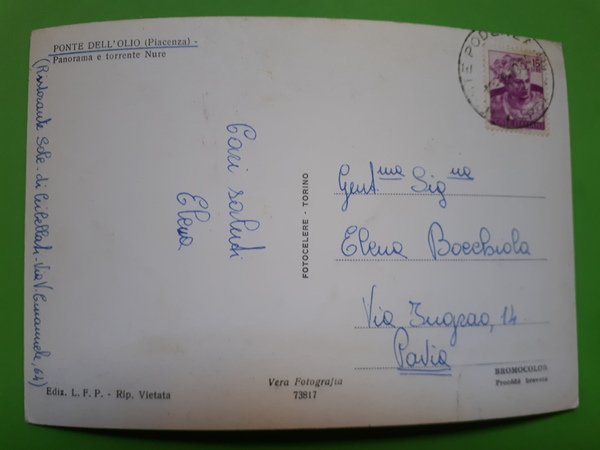 PONTE DELL'OLIO (Piacenza) -
Panorama e torrente Nure
(Ristorante Sole - di Cubellati - Via V. Emanuele, 64)
Cari saluti
Elena
FOTOCELERE - TORINO
15
Gent.ma Sig.na
Elena Bocchiola
Via
14
Pavia
Ediz. L. F. P. - Rip. Vietata
Vera Fotografia
73817
BROMOCOLOR
Procédé breveté